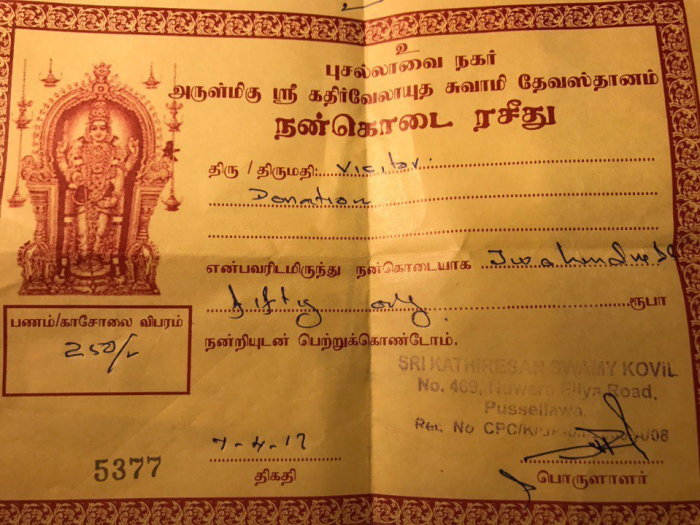 உ
புசல்லாவை நகர்
அருள்மிகு ஸ்ரீ கதிர்வேலாயுத சுவாமி தேவஸ்தானம்
நன்கொடை ரசீது
திரு / திருமதி: Visitor.
Donation
என்பவரிடமிருந்து நன்கொடையாக Two hundred
fifty only ரூபா
பணம்/காசோலை விபரம்
250/-
நன்றியுடன் பெற்றுக்கொண்டோம்.
SRI KATHIRESAN SWAMY KOVIL
No. 469, Nuwara Eliya Road,
Pussellawa.
Reg. No CPC/K/
7-4-17
5377
திகதி
பொருளாளர்